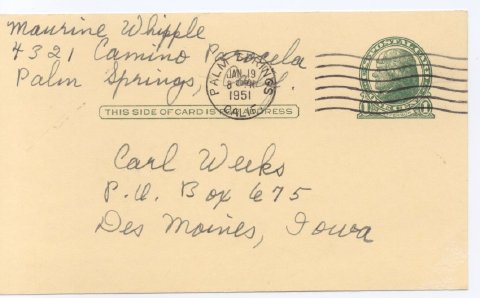 Maurine Whipple
4321 Camino Parocela
Palm Springs, Cal.
PALM SPRINGS
JAN 19
1951
CALIF.
THIS SIDE OF CARD IS FOR ADDRESS
Carl Weeks
P.O. Box 675
Des Moines, Iowa